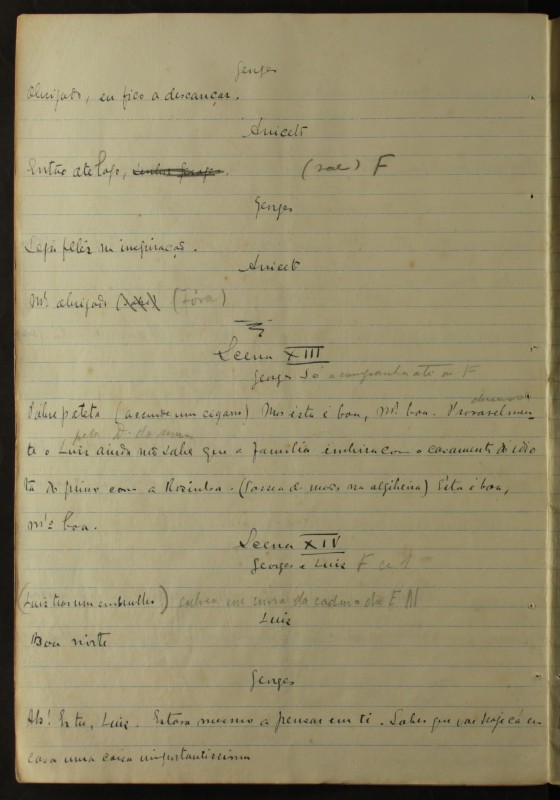 Georges
Obrigado, eu fico a descançar.
Aniceto
Então até logo, (sae) F
Georges
Seja feliz na inspiração.
Aniceto
Mto obrigado (Fóra)
Scena XIII
Georges só acompanha até ao F
Pobre pateta (acende um cigarro) Mas esta é boa, mto boa. Provavelmen-
te o Luiz ainda não sabe que a familia embirra com o casamento do idio
ta do primo com a Rozinha. (Passeia de mãos na algibeira) Esta é boa,
mto boa.
Scena XIV
Georges e Luiz F
(Luiz tras um embrulho) em cima da cadeira da E
Luiz
Boa noite
Georges
Ah! És tu, Luiz. Estava mesmo a pensar em ti. Sabes que vae hoje cá em
casa uma coisa importantissima